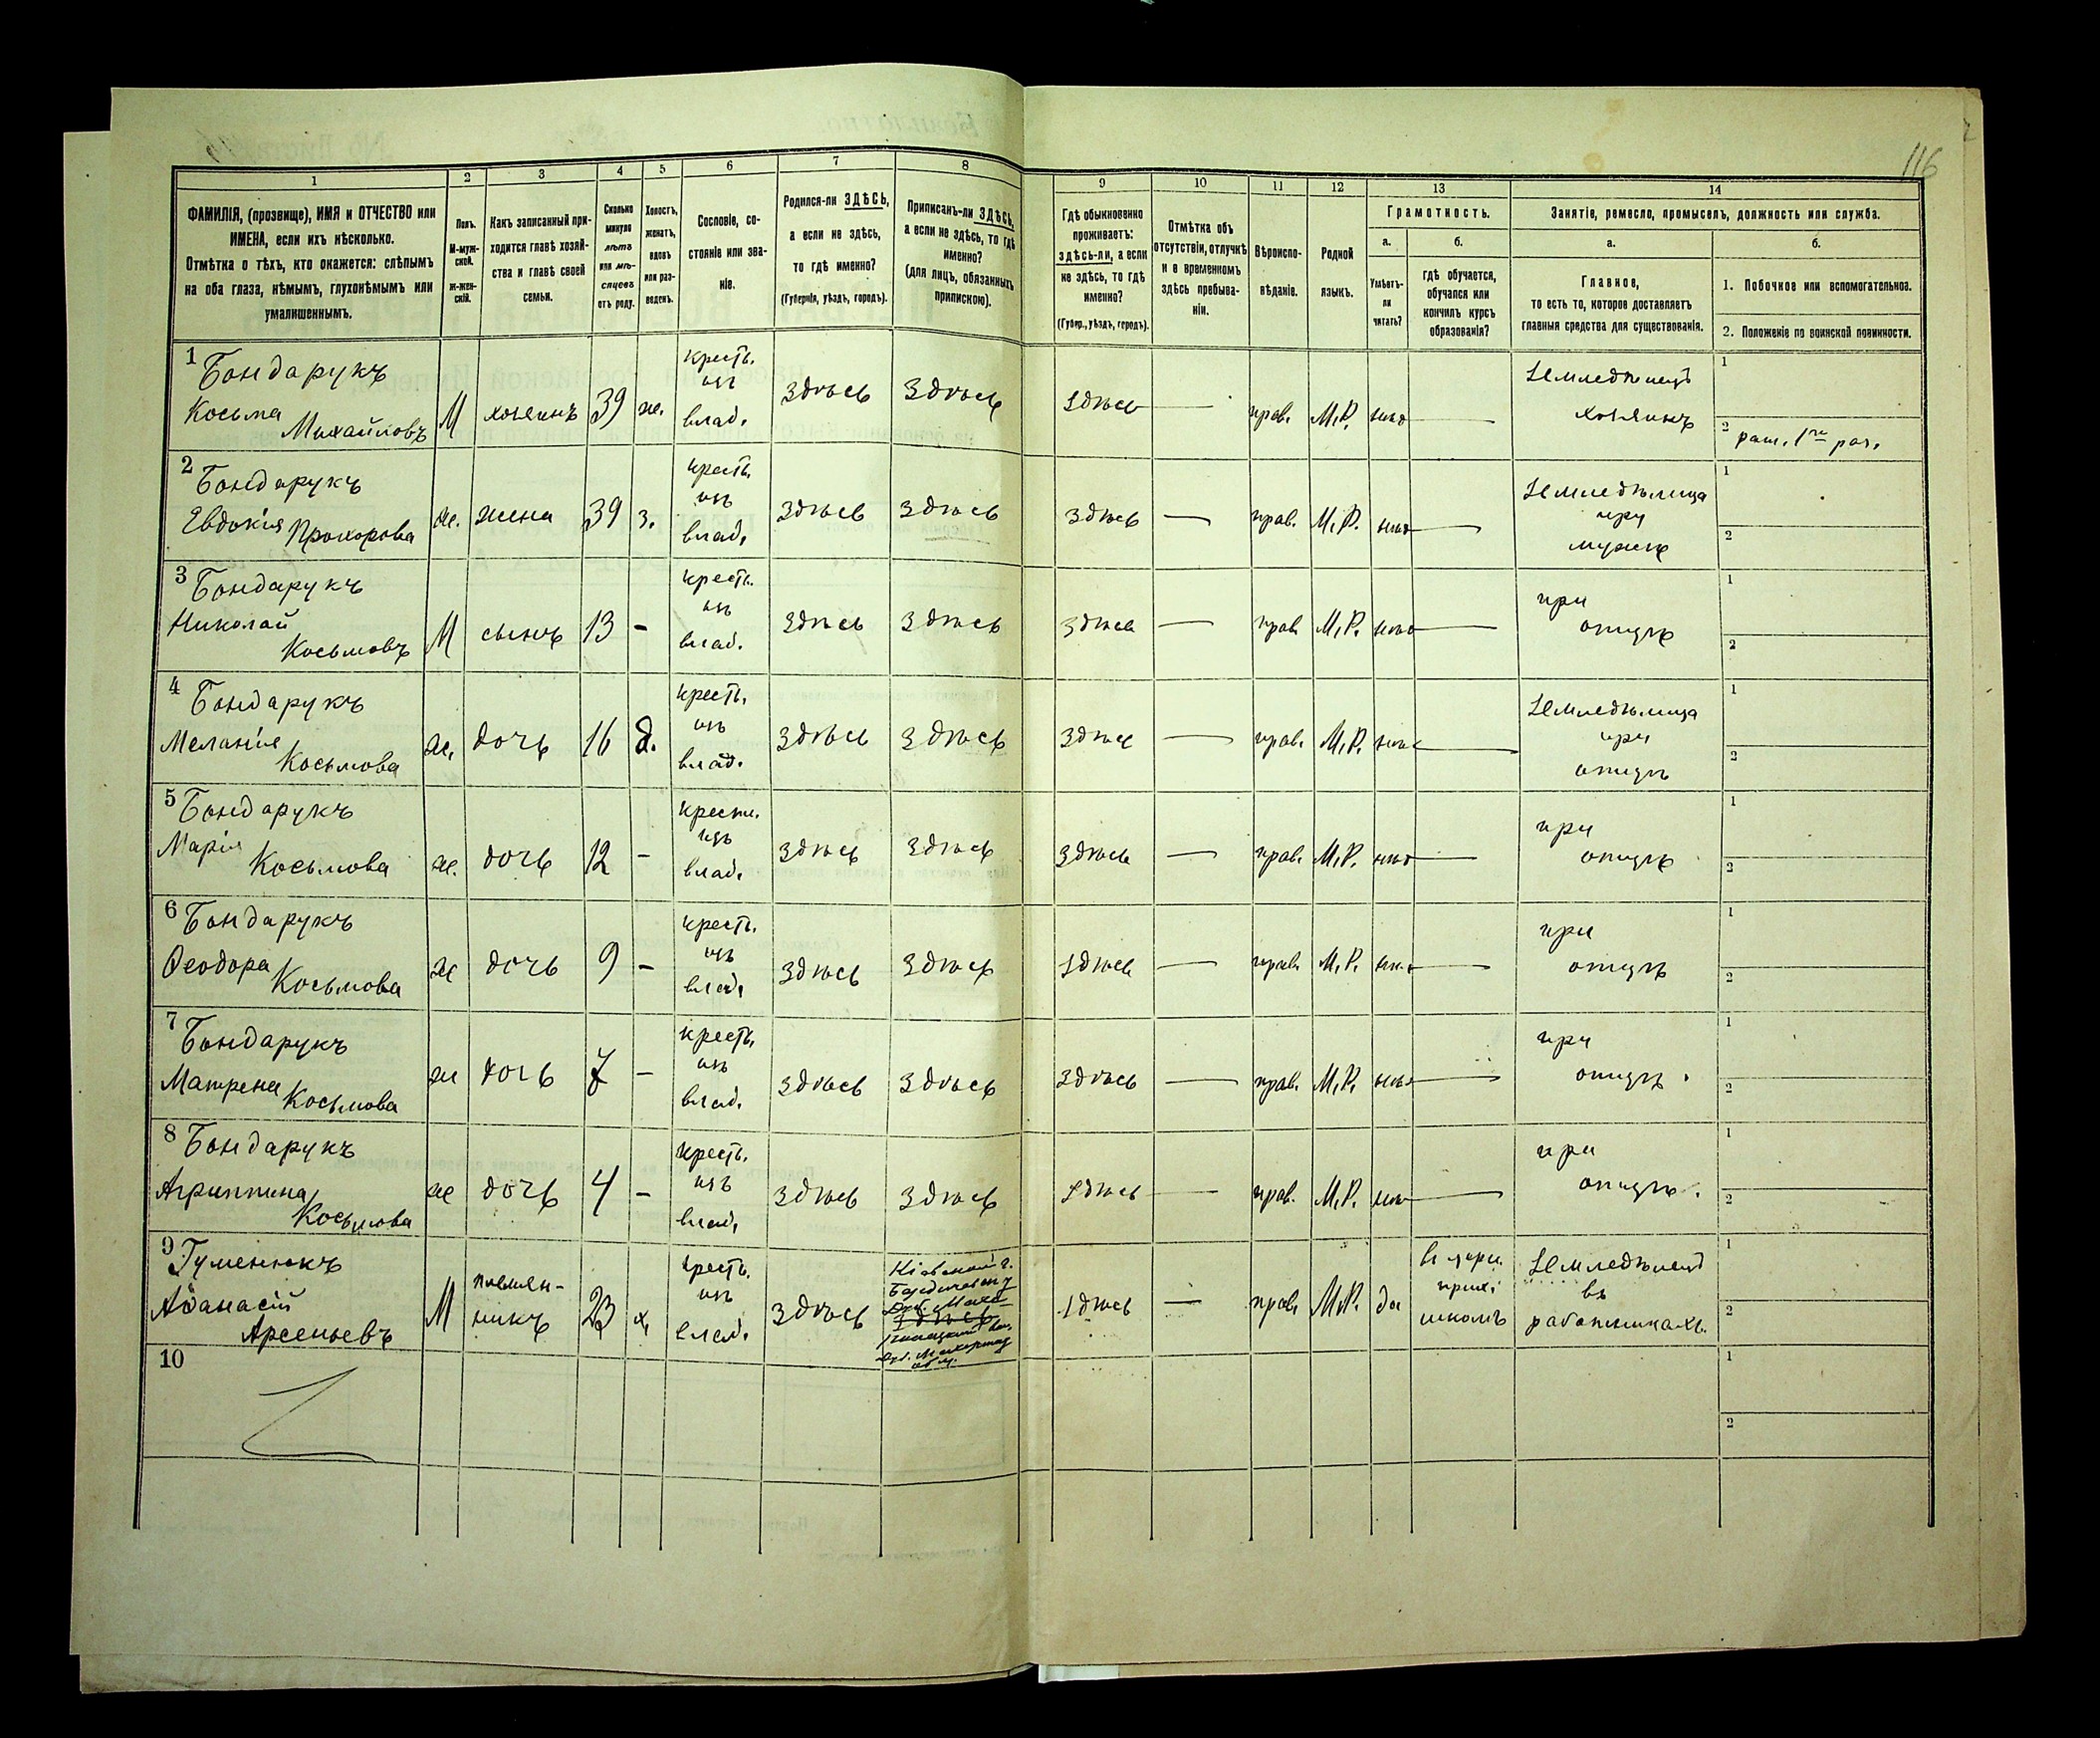 116
1 2 3 4 5 6 7 8 9 10 11 12 13 14
ФАМИЛІЯ, (прозвище), ИМЯ и ОТЧЕСТВО или
ИМЕНА, если ихъ нѣсколько.
Отмѣтка о тѣхъ, кто окажется: слѣпымъ
на оба глаза, нѣмымъ, глухонѣмымъ или
умалишеннымъ.
Полъ.
М-муж-
ской.
Ж-жен-
скій.
Какъ записанный при-
ходится главѣ хозяй-
ства и главѣ своей
семьи.
Сколько
минуло
лѣтъ
или мѣ-
сяцевъ
отъ роду.
Холостъ,
женатъ,
вдовъ
или раз-
веденъ.
Сословіе, со-
стояніе или зва-
ніе.
Родился-ли ЗДѢСЬ,
а если не здѣсь,
то гдѣ именно?
(Губернія, уѣздъ, городъ).
Приписанъ-ли ЗДѢСЬ,
а если не здѣсь, то гдѣ
именно?
(для лицъ, обязанныхъ
припискою).
Гдѣ обыкновенно
проживаетъ:
здѣсь-ли, а если
не здѣсь, то гдѣ
именно?
(Губер., уѣздъ, городъ).
Отмѣтка объ
отсутствіи, отлучкѣ
и о временномъ
здѣсь пребыва-
ніи.
Вѣроиспо-
вѣданіе.
Родной
языкъ.
Грамотность.
а.
Умѣетъ-
ли
читать?
б.
гдѣ обучается,
обучался или
кончилъ курсъ
образованія?
Занятіе, ремесло, промыселъ, должность или служба.
а.
Главное,
то есть то, которое доставляетъ
главныя средства для существованія.
б.
1. Побочное или вспомогательное.
2. Положеніе по воинской повинности.
1 Бондарукъ
Косьма
Михайловъ
М
хозяинъ
39
ж.
крестъ.
изъ
влад.
здѣсь
здѣсь
здѣсь
прав.
М.Р.
нѣтъ
Земледѣлецъ
хозяинъ
1
2 рат. 1го раз.
2 Бондарукъ
Евдокія Прохорова
ж.
жена
39
з.
крест.
изъ
влад.
здѣсь
здѣсь
здѣсь
прав.
М.Р.
нѣтъ
Земледѣлица
при
мужѣ
1
2
3 Бондарукъ
Николай
Косьмовъ
М
сынъ
13
-
крест.
изъ
влад.
здѣсь
здѣсь
здѣсь
прав.
М.Р.
нѣтъ
при
отцѣ
1
2
4 Бондарукъ
Меланія
Косьмова
ж.
дочь
16
д.
крест.
изъ
влад.
здѣсь
здѣсь
здѣсь
прав.
М.Р.
нѣтъ
Земледѣлица
при
отцѣ
1
2
5 Бондарукъ
Марія
Косьмова
ж.
дочь
12
-
крест.
изъ
влад.
здѣсь
здѣсь
здѣсь
прав.
М.Р.
нѣтъ
при
отцѣ
1
2
6 Бондарукъ
Ѳеодора
Косьмова
ж
дочь
9
-
крест.
изъ
влад.
здѣсь
здѣсь
здѣсь
прав.
М.Р.
нѣтъ
при
отцѣ
1
2
7 Бондарукъ
Матрена
Косьмова
ж
дочь
7
-
крест.
изъ
влад.
здѣсь
здѣсь
здѣсь
прав.
М.Р.
нѣтъ
при
отцѣ.
1
2
8 Бондарукъ
Агриппина
Косьмова
ж
дочь
4
-
крест.
изъ
влад.
здѣсь
здѣсь
здѣсь
прав.
М.Р.
нѣтъ
при
отцѣ.
1
2
9 Гуменюкъ
Аѳанасій
Арсеньевъ
М
племян-
никъ
23
х.
крест.
изъ
влад.
здѣсь
Кіевской г.
здѣсь
здѣсь
прав.
М.Р.
да
прих.
школѣ
Земледѣлецъ
въ
работникахъ.
1
2
10
1
2